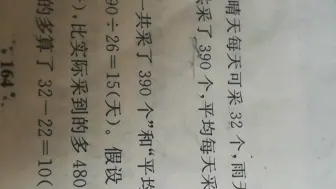 晴天每天可采 32 个，雨天
采了 390 个，平均每天采
一共采了 390 个”和“平均
90÷26=15(天)。假设
)，比实际采到的多 480
的多算了 32－22=10(
· 164 ·